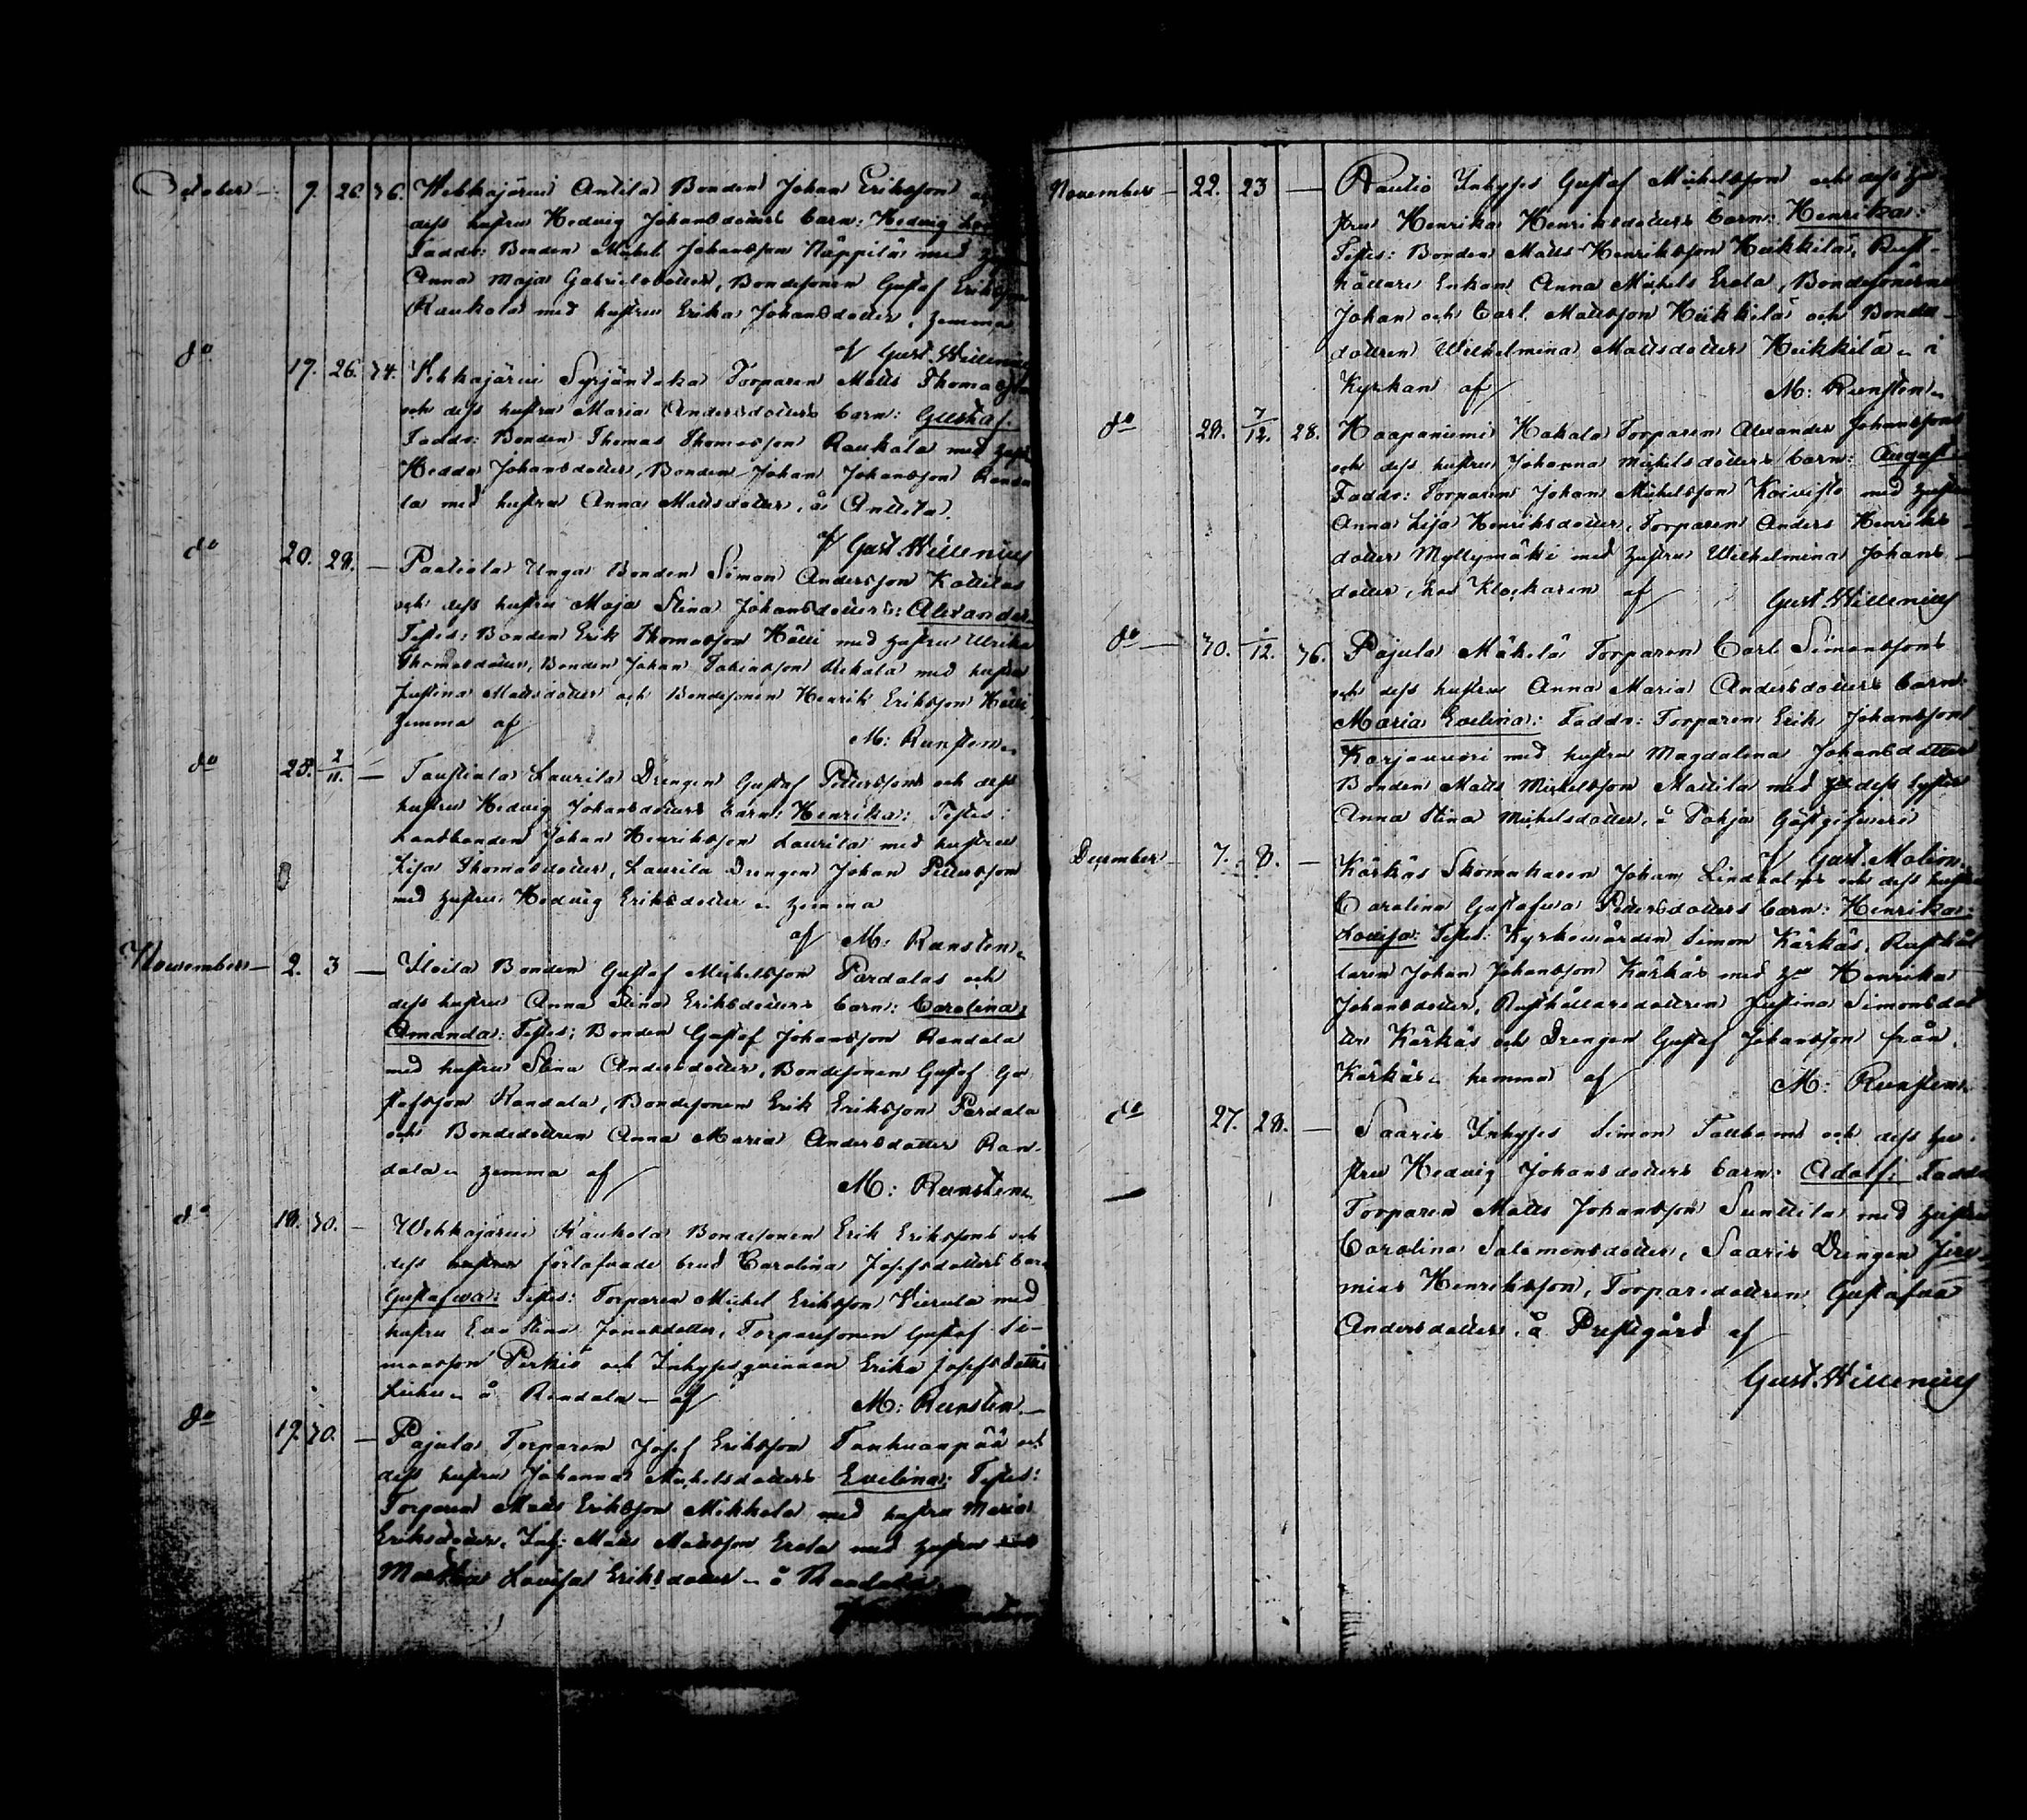 October – 9. 26. 36. Wehkajärwi Antila Bonden Johan Eriksson
dess hustru Hedvig Johansdotters barn: Hedvig
Faddr: Bonden Michel Johansson Näppilä med
Anna Maja Gabrielsdotter, Bondesonen Gustaf Eriksson
Raukola med hustru Erika Johansdotter, hemma
af Gust. Willenius
do 17. 26. 34. Vehkajärvi Syrjäntaka Torparen Matts Thomasson
och dess hustru Maria Andersdotters barn: Gustaf.
Faddr: Bonden Thomas Thomasson Raukala med hustru
Hedda Johansdotter, Bonden Johan Johansson Randa
la med hustru Anna Mattsdotter, å Antila.
af Gust. Willenius
do 20. 28. – Padiala Unga Bonden Simon Andersson Kottilas
och dess hustru Maja Stina Johansdotters: Alexander
Testes: Bonden Erik Thomasson Hälli med hustru Ulrika
Thomasdotter, Bonden Johan Tobiasson Uskala med hustru
Justina Mattsdotter och Bondesonen Henrik Eriksson Hälli
hemma af
M: Runsten
do 25. 2/11. – Taustiala Laurila Drengen Gustaf Pettersson och dess
hustru Hedvig Johansdotters barn: Henrika: Testes:
Landbonden Johan Henriksson Laurila med hustru
Lisa Thomasdotter, Laurila Drengen Johan Pettersson
med hustru Hedvig Eriksdotter hemma
af M: Runsten
November – 2. 3 – Iloila Bonden Gustaf Michelsson Pardalas och
dess hustru Anna Stina Eriksdotters barn: Carolina
Amanda: Testes: Bonden Gustaf Johansson Randala
med hustru Stina Andersdotter, Bondesonen Gustaf Gu
stafsson Randala, Bondesonen Erik Eriksson Pardala
och Bondedottren Anna Maria Andersdotter Ran-
dala hemma af
M: Runsten
do 18. 30. – Wehkajärwi Raukola Bondesonen Erik Erikssons och
dess hustrus förlofvade brud Carolina Josefsdotters barn
Gustafwa: Testes: Torparen Michel Eriksson Vierula med
hustru Eva Stina Jonasdotter, Torparesonen Gustaf Si-
monsson Perkiö och Inhysesqvinnan Erika Josefsdotter
å Randala – af M: Runsten –
do 19. 30. – Pajula Torparen Josef Eriksson Tanhuanpää och
dess hustru Johanna Michelsdotters Evelina: Testes:
Torparen Matts Eriksson Mikkola med hustru Maria
Eriksdotter, Inh: Matts Mattsson Erola med hustru
Martha Lovisa Eriksdotter – å Randala
November – 22. 23 – Rautio Inhyses Gustaf Michelsson och dess hu
stru Henrika Henriksdotters barn: Henrika:
Testes: Bonden Matts Henriksson Heikkilä, Rust-
hållare Enkan Anna Michels Erola, Bondesönerna
Johan och Carl Mattsson Heikkilä och Bonde
dottren Wilhelmina Mattsdotter Heikkilä i
Kyrkan af M: Runsten
do 28. 7/12. 28. Haapaniemi Kakala Torparen Alexander Johanssons
och dess hustru Johanna Michelsdotters barn: August
Faddr: Torparen Johan Michelsson Koivisto med hustru
Anna Lisa Henriksdotter, Torparen Anders Henriks
dotter Myllymäki med hustru Wilhelmina Johans –
dotter, hos Klockaren af Gust. Willenius
do – 30. /12. 36. Pajula Mäkelä Torparen Carl Simonssons
och dess hustru Anna Maria Andersdotters barn:
Maria Evelina: Faddr: Torparen Erik Johansson
Karjanvuori med hustru Magdalena Johansdotter
Bonden Matts Michelsson Mattila med dess syster
Anna Stina Michelsdotter, å Pohja Gästgifveri
af Gust. Molin.
December – 7. 8. – Kärkäs Skomakaren Johan Lindholms och dess hustru
Carolina Gustafva Pettersdotters barn: Henrika
Lovisa: Testes: Kyrkovärden Simon Kärkäs, Rusthål
laren Johan Johansson Kärkäs med hu Henrika
Johansdotter, Rusthållaredottren Justina Simonsdot
ter Kärkäs och Drengen Gustaf Johansson från
Kärkäs hemma af M: Runsten
do 27. 28. – Saaris Inhyses Simon Tallbom och dess hu
stru Hedvig Johansdotters barn: Adolf: Faddr
Torparen Matts Johansson Sunttila med hustru
Carolina Salomonsdotter, Saaris Drengen Jere
mias Henriksson, Torparedottren Gustafva
Andersdotter, å Prestgård af
Gust. Willenius